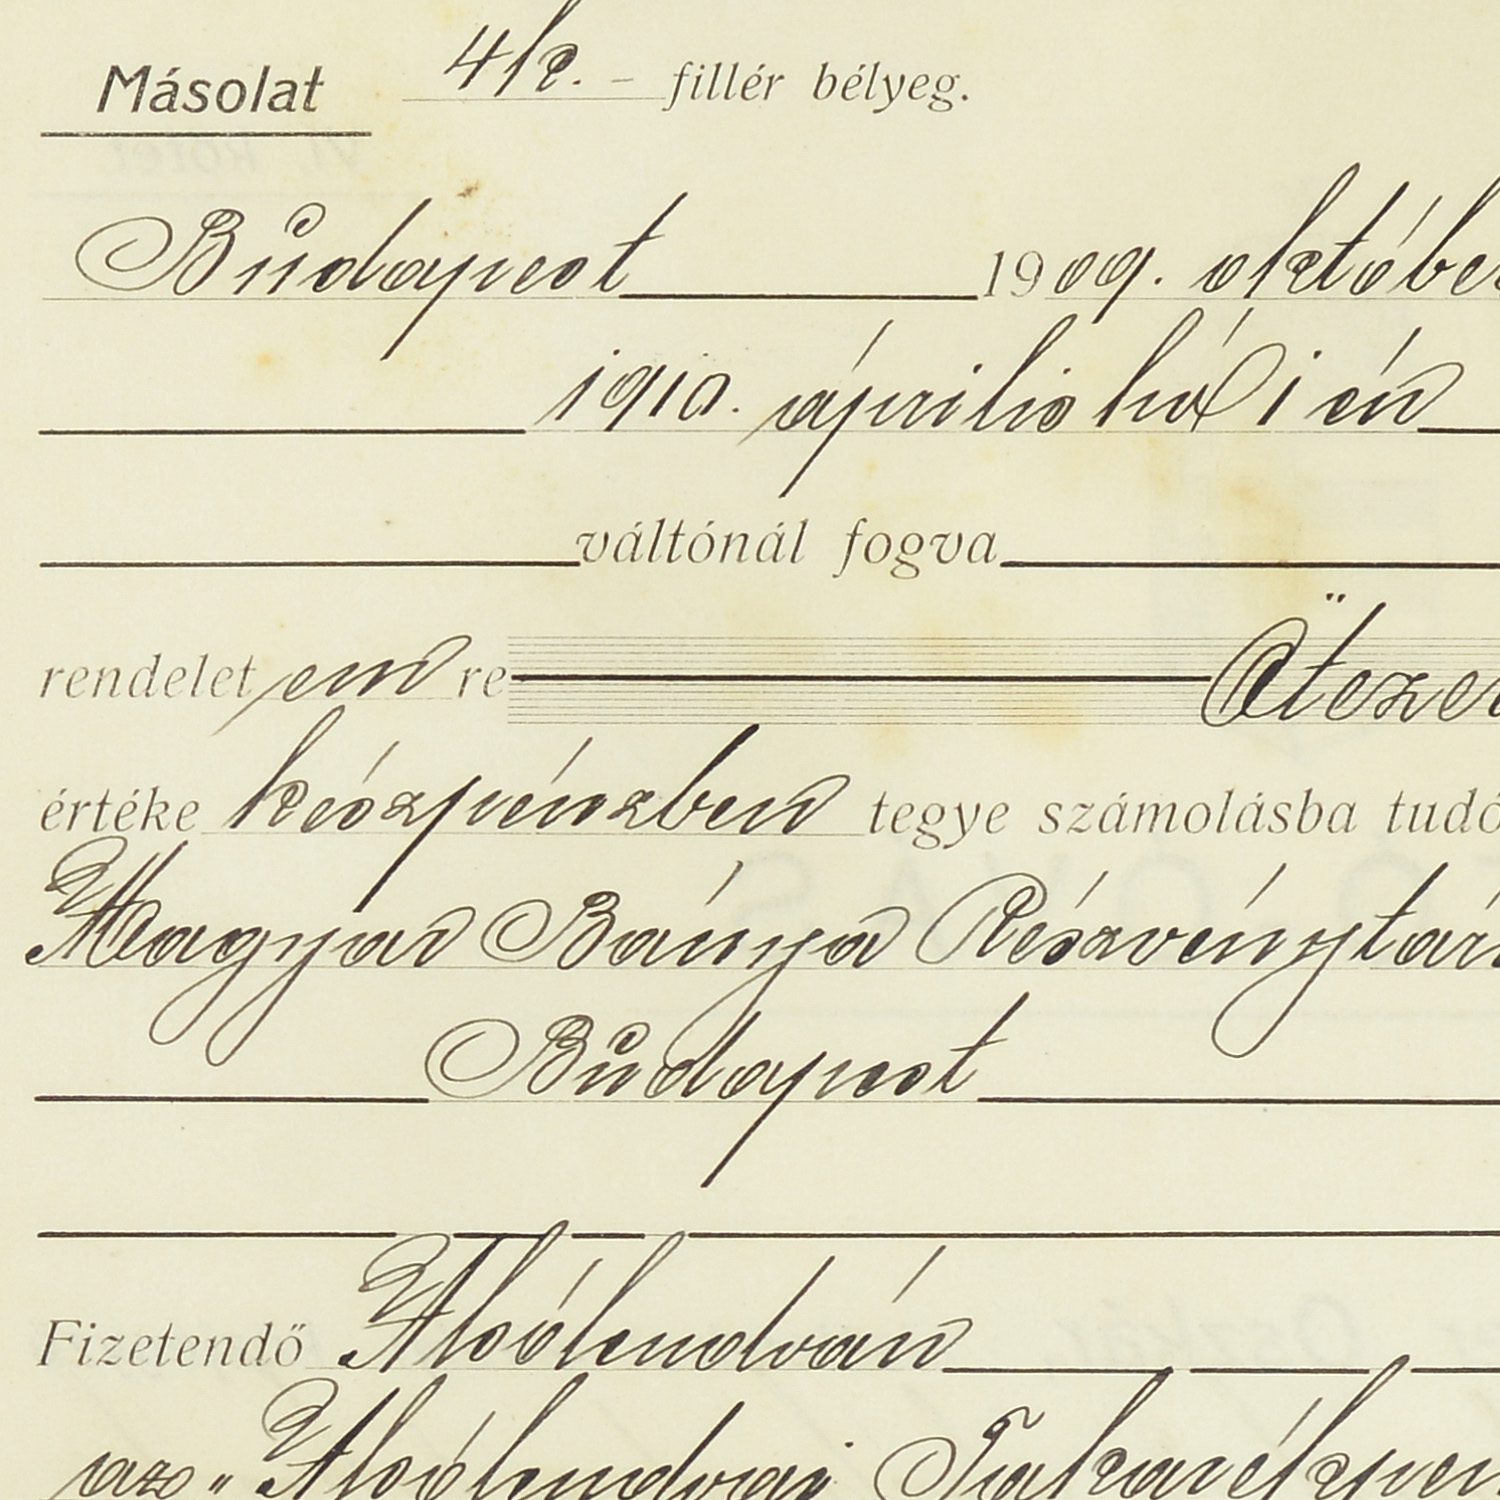 Másolat 4k. – fillér bélyeg.
Budapest 1909. október
1910. április hó 1 én
váltónál fogva
rendelet em re Ötezer
értéke készpénzben tegye számolásba tudó
Magyar Bánya Részvénytárs
Budapest
Fizetendő Alsólendván
az „Alsólendvai Takarékpén